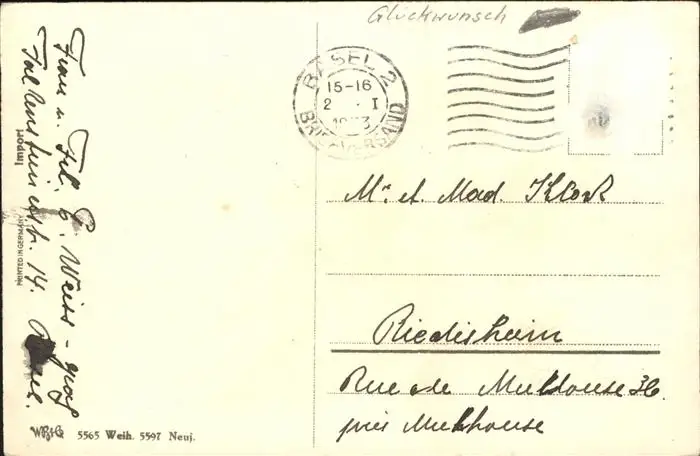 Glückwunsch
BASEL 2
15-16
2 . I
1933
BRIEFVERSAND
Mr. et. Mad. Klock
Riedisheim
Rue de Mulhouse 36.
près Mulhouse
Frau u. Frl. E. Weiss - Graf
Falkensteinerstr. 14. Basel.
Import
PRINTED IN GERMANY
5565 Weih. 5597 Neuj.